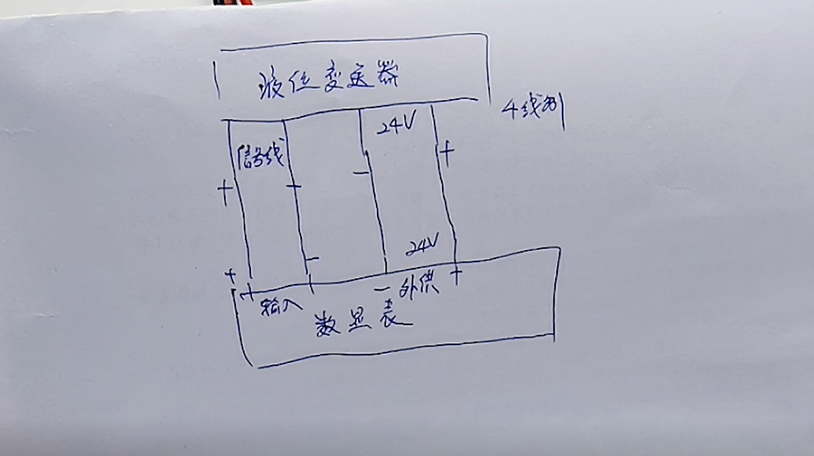 液位变送器
4线制
24V
信号线
+ - - +
24V
+ -
+ - 外供 +
输入
数显表